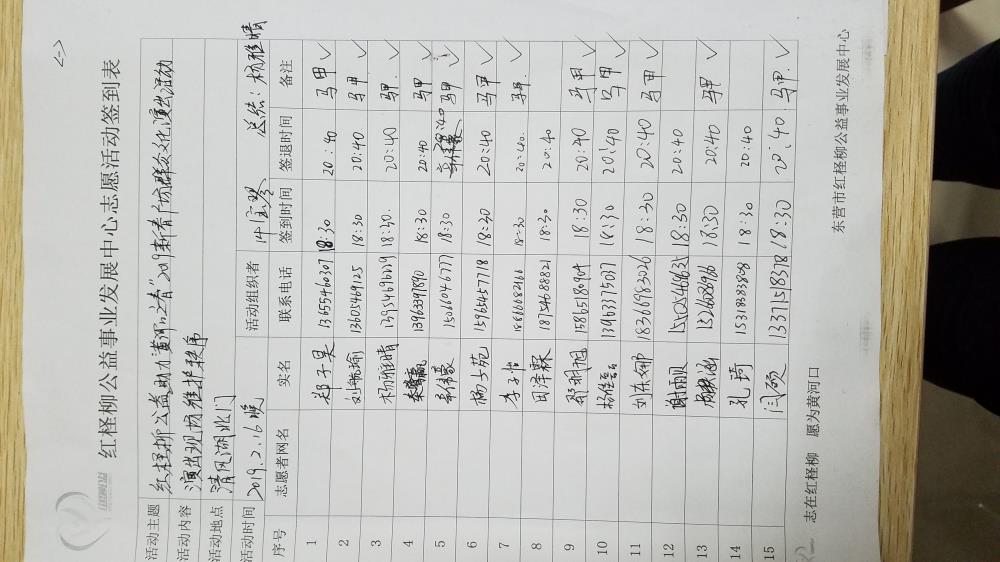 <一>
红柽柳公益事业发展中心志愿活动签到表
活动主题 红柽柳公益助力"黄河口之春"2019新春广场群众文化演出活动
活动内容 演出现场维护秩序
活动地点 清风湖北门
活动时间 2019.2.16晚 活动组织者 总结：杨雅晴
序号 志愿者网名 实名 联系电话 签到时间 签退时间 备注
1 郑子昊 13655460307 18:30 20:40 马甲 ✓
2 刘毓瑜 13605469125 18:30 20:40 马甲 ✓
3 杨雅晴 13954696229 18:30. 20:40 马甲. ✓
4 13963397890 18:30 20:40 马甲 ✓
5 15066046777 18:30 20:40 马甲 ✓
6 杨士苑 15965457718 18:30 20:40 马甲 ✓
7 李子怡 18866682166 18:30 20:40. 马甲. ✓
8 田泽霖 18754688821 18:30 20:40
9 15865180904 18:30 20:40 马甲 ✓
10 13963375037 18:30 20:40 马甲 ✓
11 刘东娜 18366983026 18:30 20:40 马甲 ✓
12 谢雨贝 15105469635 18:30 20:40
13 18:30 20:40 马甲 ✓
14 孔琦 15318383808 18:30 20:40
15 闫硕 13371518378 18:30 20:40 马甲. ✓
志在红柽柳 愿为黄河口 东营市红柽柳公益事业发展中心